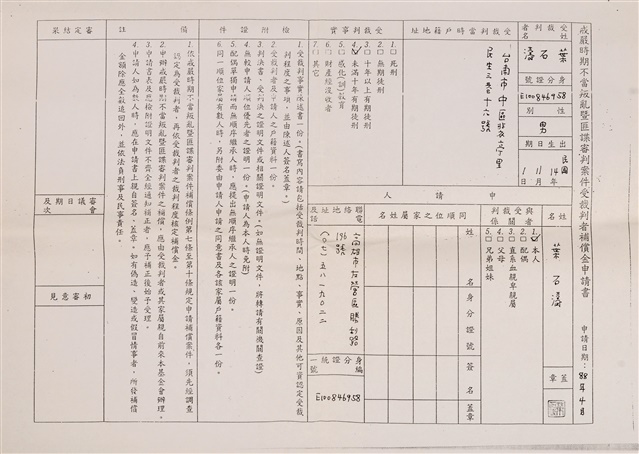 戒嚴時期不當叛亂暨匪諜審判案件受裁判者補償金申請書
申請日期：88年4月
受裁判者姓名
葉石濤
身分證號
E100846958
性別
男
出生日期
民國14年11月1日
受裁判當時戶籍地址
台南市中區
民生
受裁判事實
1.□死刑
2.□無期徒刑
3.□十年以上有期徒刑
4.☑未滿十年有期徒刑
5.□感化(訓)教育
6.□財產經沒收者
7.□其它
申請人
姓名
葉石濤
蓋章
與受裁判者關係
1.☑本人
2.□配偶
3.□直系血親卑親屬
4.□父母
5.□兄弟姐妹
同順位之家屬姓名
姓名
身分證號
簽名蓋章
聯絡地址及電話
高雄市左營區勝利路
196號
(〇七)五八一九〇二二
身分證統一編號
E100846958
檢附證件
1.受裁判事實陳述書一份。(書寫內容請包括受裁判時間、地點、事實、原因及其他可資認定受裁
判程度之事項，並由陳述人簽名蓋章。)
2.受裁判者及申請人之戶籍資料一份。
3.判決書、受刑之證明文件或相關證明文件。(如無證明文件，將轉請有關機關查證)
4.無較申請人順位優先者之證明一份。(申請人為本人時免附)
5.配偶單獨申請而無順序繼承人時，應提出無順序繼承人之證明一份。
6.同一順位家屬有數人時，另附委由申請人申請之同意書及各該家屬戶籍資料各一份。
備註
1.依戒嚴時期不當叛亂暨匪諜審判案件補償條例第七條至第十條規定申請補償案件，須先經調查
認定為受裁判者，再依受裁判者之裁判程度核定補償金。
2.申辦戒嚴時期不當叛亂暨匪諜審判案件之補償，應由受裁判者或其家屬親自前來本基金會辦理。
3.申請書表及應檢附證明文件不齊全經通知補正者，應予補正後始予受理。
4.申請人如為數人時，應在申請書上親自簽名、蓋章。如有偽造、變造或假冒情事者，所發補償
金額除應全數追回外，並依法負刑事及民事責任。
審定結果
審議會日期及次
初審意見